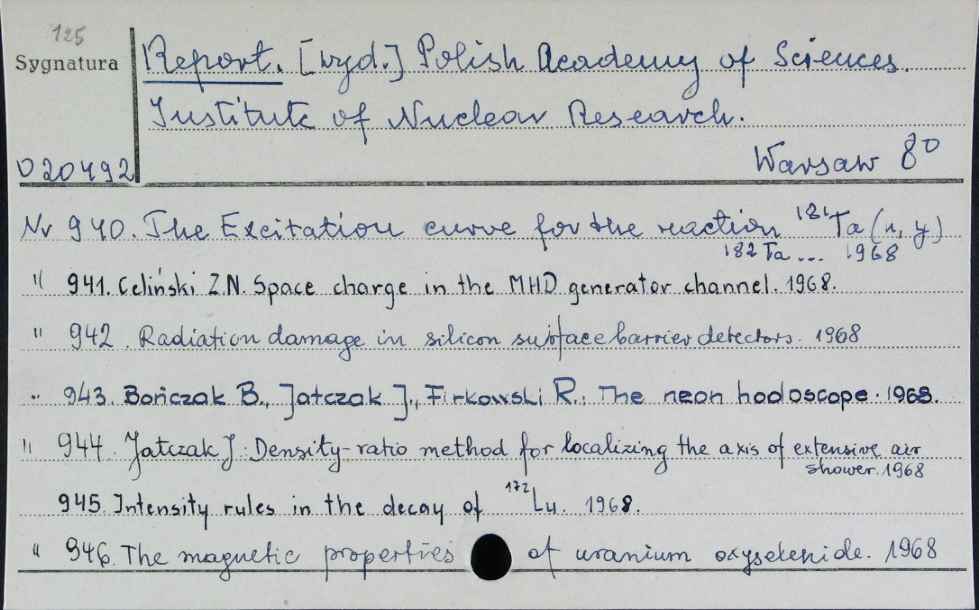 125
Sygnatura
Report. [wyd.] Polish Academy of Sciences.
Institute of Nuclear Research.
D 20492
Warsaw 8⁰
Nr 940. The Excitation curve for the reaction ¹⁸¹Ta (n, γ)
182 Ta ... 1968
" 941. Celiński Z.N. Space charge in the MHD generator channel. 1968.
" 942. Radiation damage in silicon surface barrier detectors. 1968
" 943. Bończak B., Jatczak J., Firkowski R.: The neon hodoscope. 1968.
" 944. Jatczak J.: Density-ratio method for localizing the axis of extensive air
shower. 1968
945. Intensity rules in the decay of ¹⁷²Lu. 1968.
" 946. The magnetic properties of uranium oxyselenide. 1968